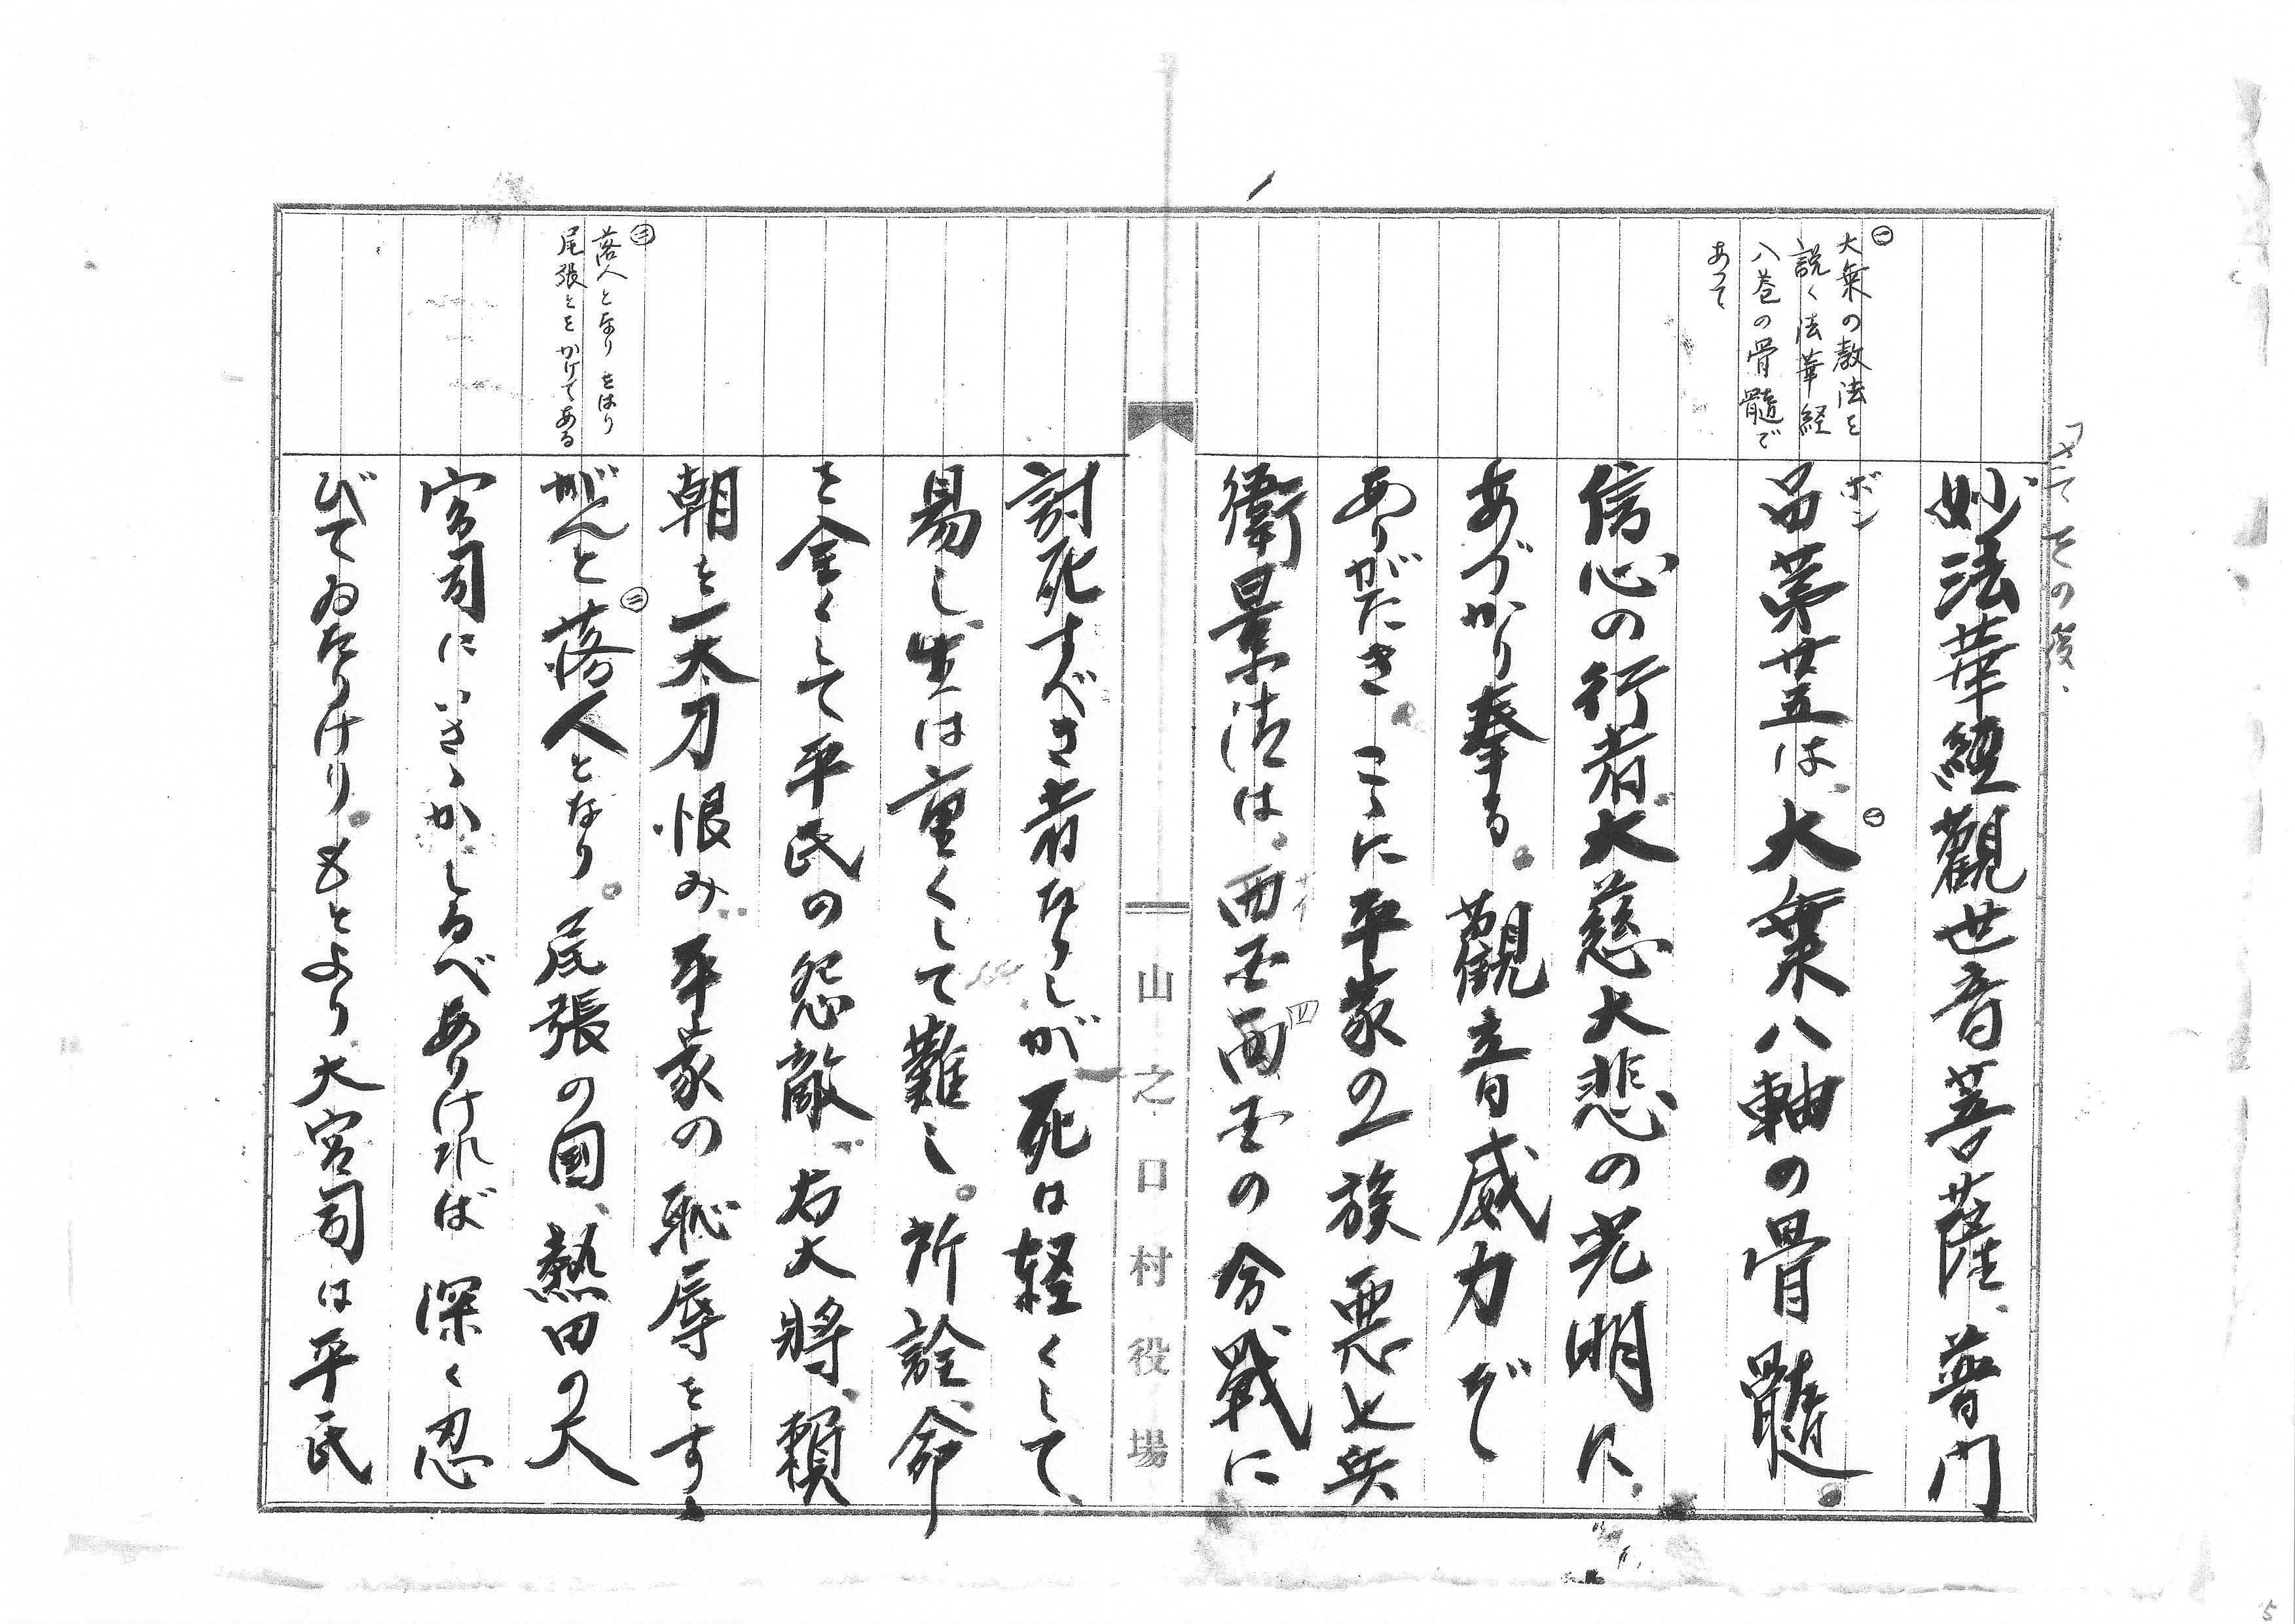 さてその後、
妙法華經觀世音菩薩、普門
ボン
品第廿五は、大乗八軸の骨髄。
㊀
信心の行者大慈大悲の光明に、
あづかり奉る。觀音威力ぞ
ありがたき。こゝに平家の一族悪七兵
衛景清は、西国四国の合戦に
サイ
四
討死すべき者なりしが死は軽くして、
易し、生は重くして難し。所詮、命
を全くして平氏の怨敵、右大將、頼
朝を一太刀恨み、平家の恥辱をすゝ
がんと落人となり。尾張の国、熱田の大
㊁
宮司にいさゝかしるべありければ深く忍
びてゐたりけり。もとより大宮司は平氏
㊀
大乗の教法を
説く法華経
八巻の骨髄で
あって
㊁
落人となり をはり
尾張とをかけてある
山之口村役場
5